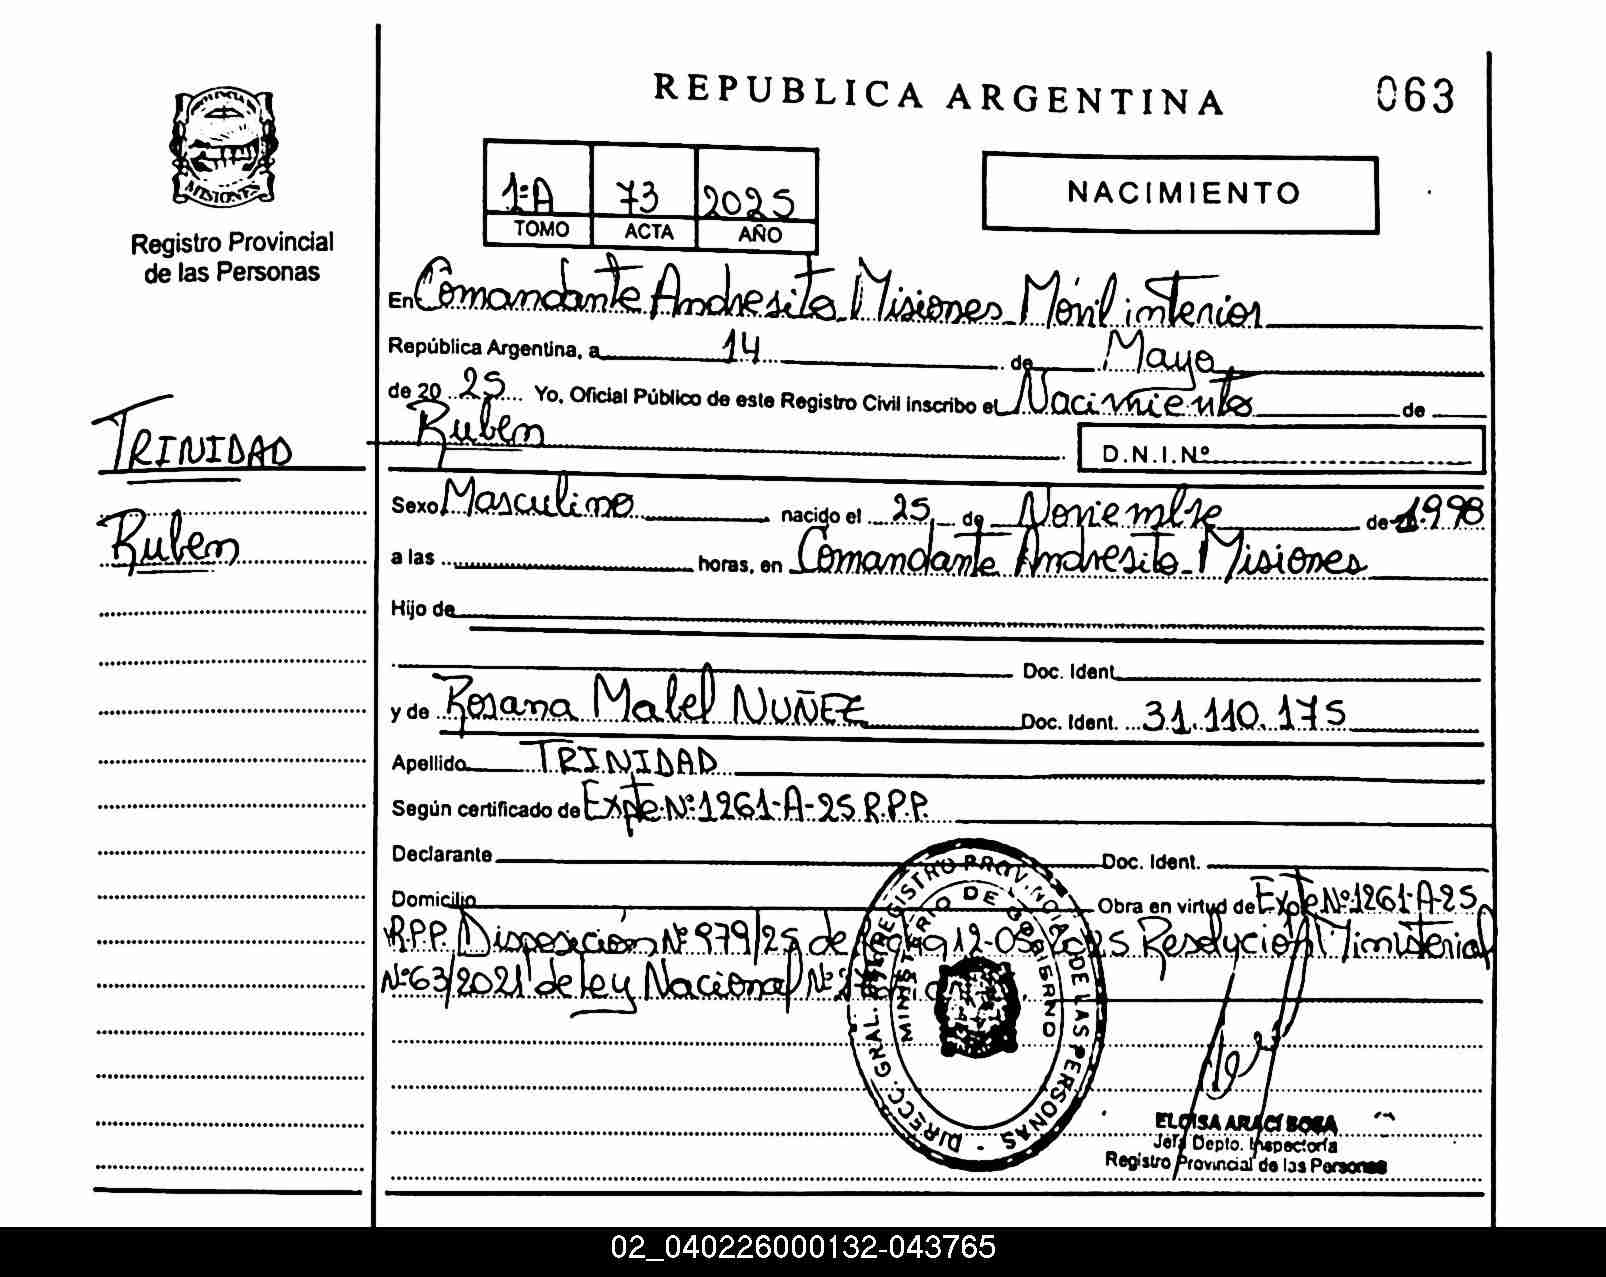 REPUBLICA ARGENTINA
063
MISIONES
Registro Provincial
de las Personas
1ºA 73 2025
TOMO ACTA AÑO
NACIMIENTO
En Comandante Andresito Misiones Móvil interior
República Argentina, a 14 de Mayo
de 20 25 Yo, Oficial Público de este Registro Civil inscribo el Nacimiento de
Ruben
D.N.I.Nº
TRINIDAD
Ruben
Sexo Masculino nacido el 25 de Noviembre de 1998
a las horas, en Comandante Andresito Misiones
Hijo de
Doc. Ident.
y de Rosana Mabel NUÑEZ Doc. Ident. 31.110.175
Apellido TRINIDAD
Según certificado de Expte Nº 1261-A-25 R.P.P.
Declarante Doc. Ident.
Domicilio Obra en virtud de Expte Nº 1261-A-25
R.P.P. Disposición Nº 979/25 de fecha 12-05-2025 Resolución Ministerial
Nº 63/2021 de Ley Nacional Nº
DIRECC. GRAL. DEL REGISTRO PROVINCIAL DE LAS PERSONAS
MINISTERIO DE GOBIERNO
ELOISA ARACÍ SOSA
Jefa Depto. Inspectoría
Registro Provincial de las Personas
02_040226000132-043765